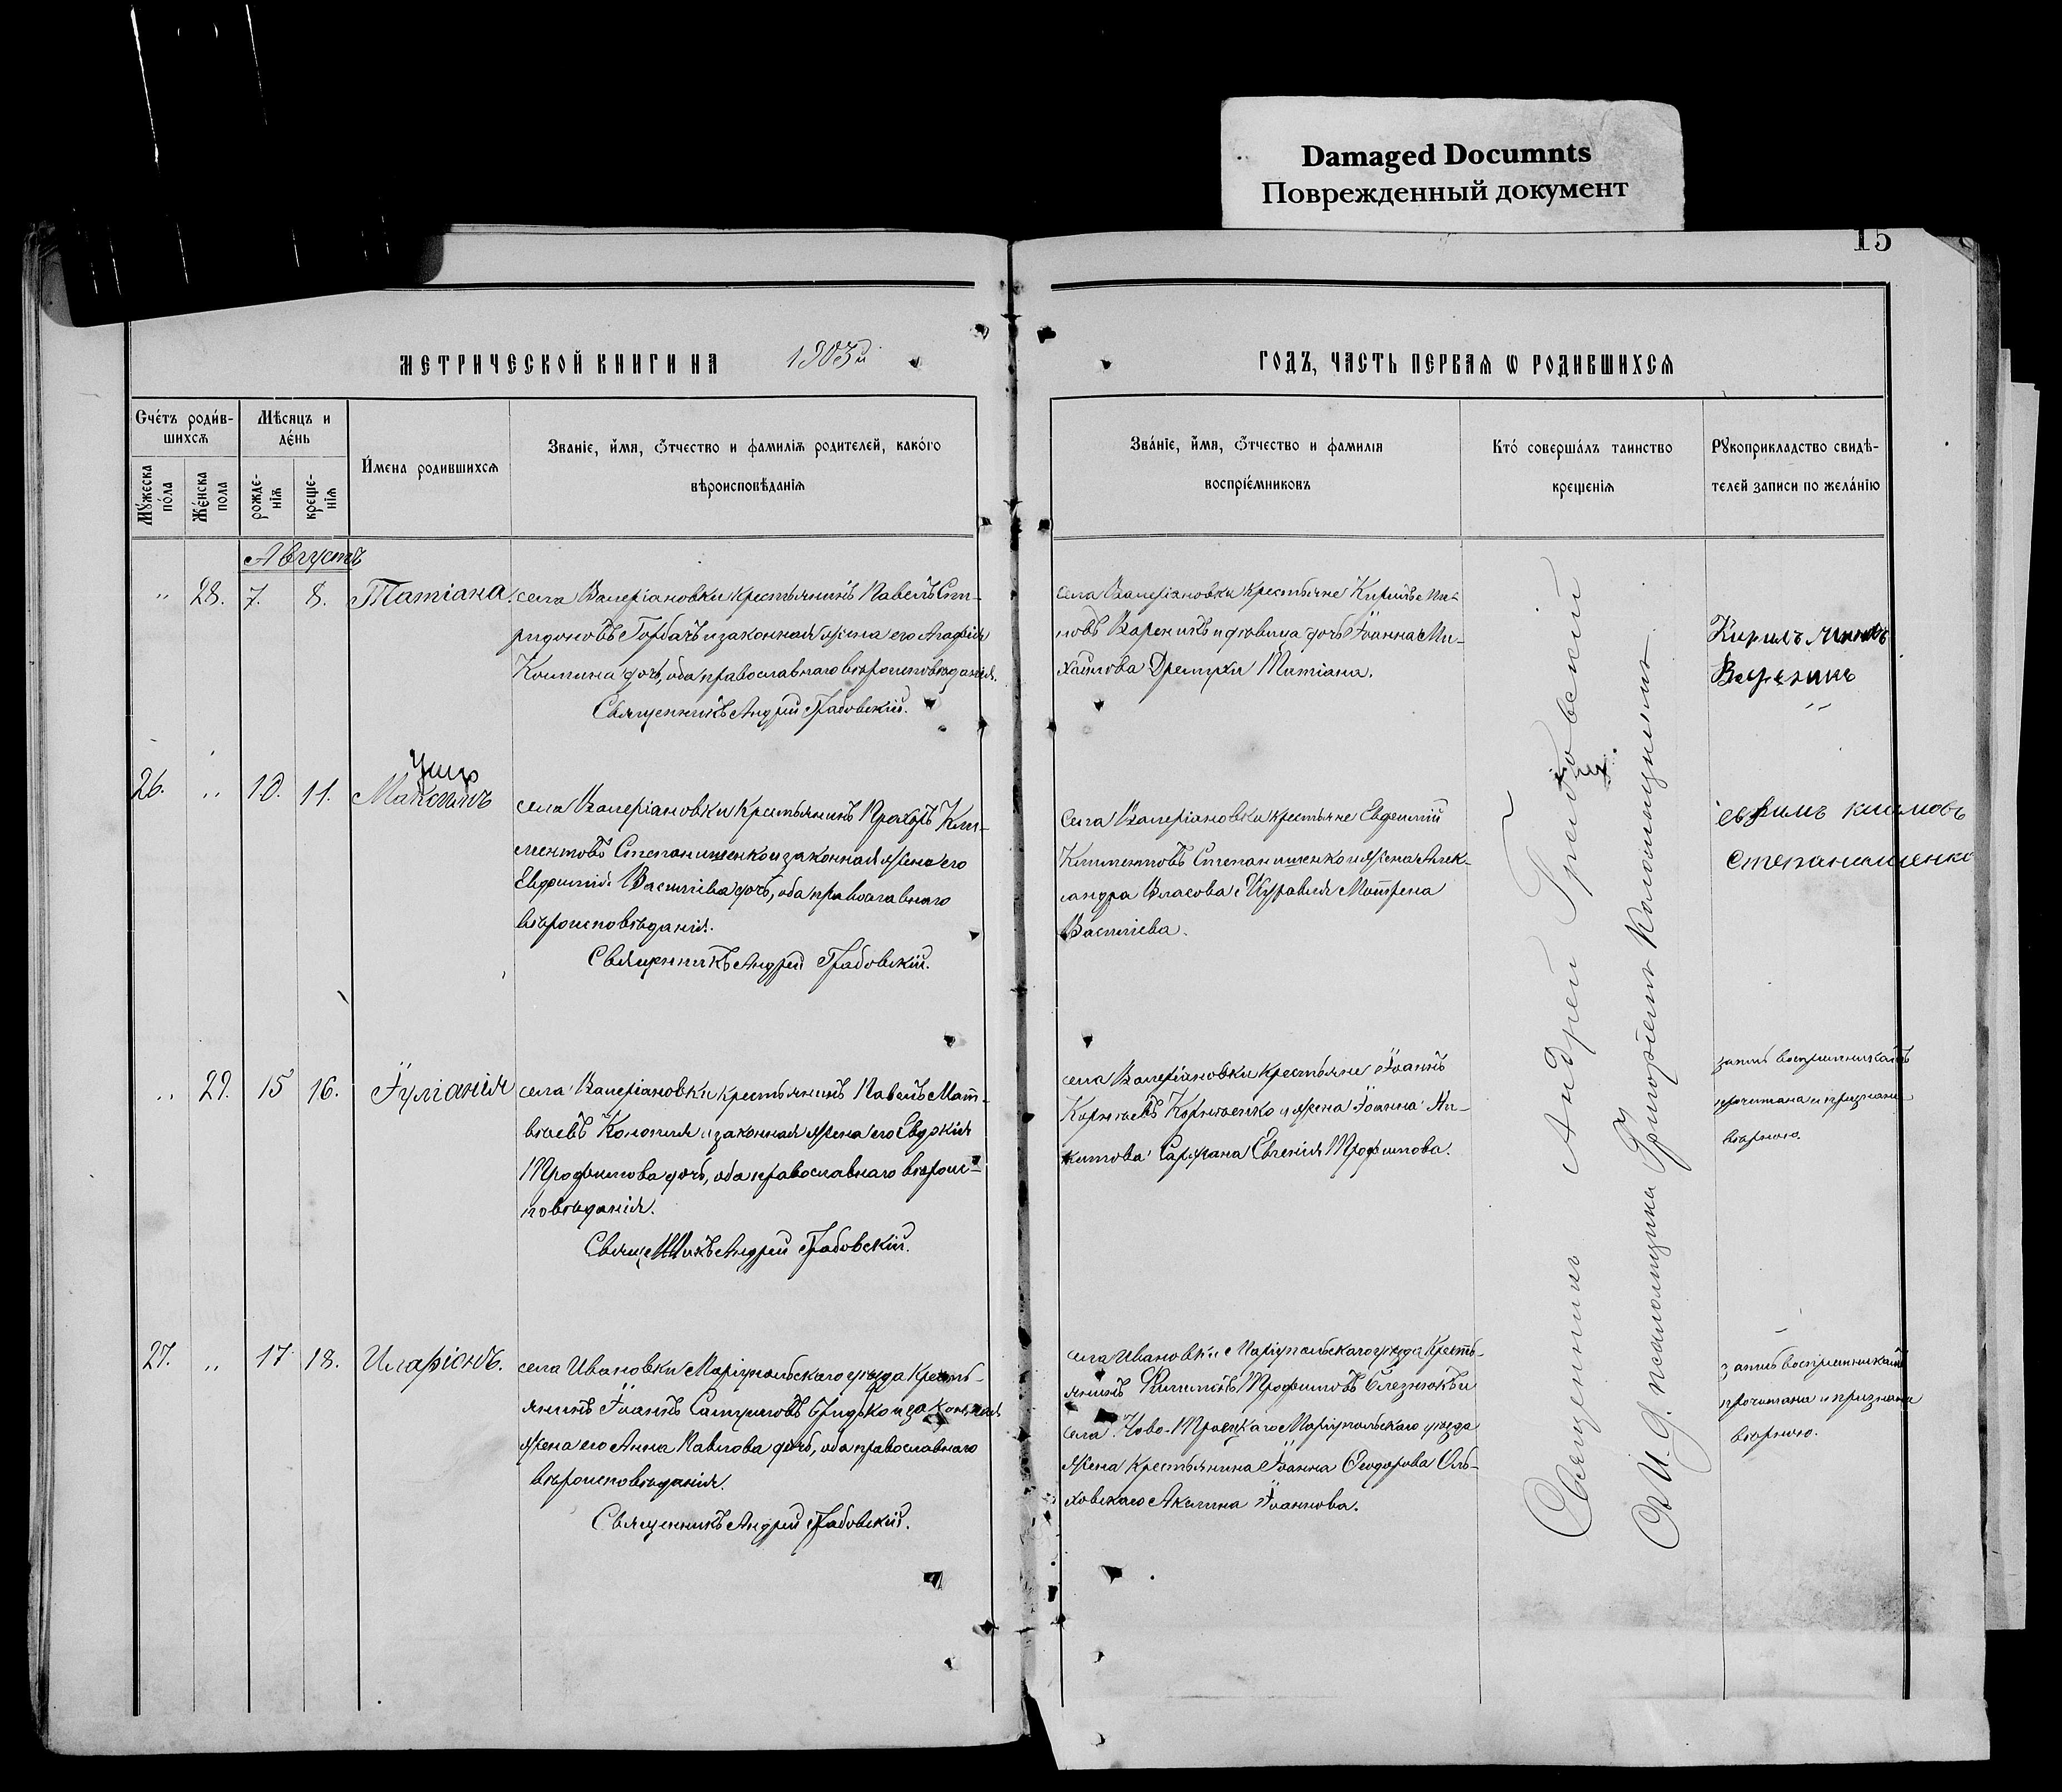 Damaged Documnts
Поврежденный документ
15
МЕТРИЧЕСКОЙ КНИГИ НА 1903й
ГОДЪ, ЧАСТЬ ПЕРВАѦ Ѡ РОДИВШИХСѦ
Счетъ родив-
шихсѧ
Мѣсяцъ и
день
Мужеска
пола
Женска
пола
рожде-
нiѧ
креще-
нiѧ
Имена родившихсѧ
Званіе, имя, ѿтчество и фамилiѧ родителей, какого
вѣроисповѣданiѧ
Званіе, имя, ѿтчество и фамилiя
воспріемниковъ
Кто совершалъ таинство
крещенiѧ
Рукоприкладство свидѣ-
телей записи по желанію
Августъ
" 28. 7. 8. Татіана.
села Валеріановки крестьянинъ Павелъ Спи-
ридоновъ Горбачъ и законная жена его Агафія
дочь, оба православнаго вѣроисповѣданія.
Священникъ Андрей Грабовскій.
села Валеріановки крестьяне Кирилъ
новъ Вареникъ и дѣвица дочь Іоанна Ми-
хайлова Татіана.
Кирилъ
Вареникъ
26. " 10. 11. Максимъ
Умер
села Валеріановки крестьянинъ Прохоръ Кли-
ментовъ Степанишенко и законная жена его
Евфимія Васильева дочь, оба православнаго
вѣроисповѣданія.
Священникъ Андрей Грабовскій.
Села Валеріановки крестьяне Евфимій
Климентовъ Степанишенко и жена Алек-
сандра Власова Журавля Матрена
Васильева.
Степанишенко
" 29. 15 16. Іуліанія
села Валеріановки крестьянинъ Павелъ Мат-
вѣевъ Конопля и законная жена его Евдокія
Трофимова дочь, оба православнаго вѣроис-
повѣданія.
Священникъ Андрей Грабовскій.
села Валеріановки крестьяне Іоаннъ
Корнѣевъ Корнѣенко и жена Іоанна Ни-
китова Евгенія Трофимова.
запись воспріемникамъ
прочитана и признана
вѣрною.
27. " 17 18. Иларіонъ.
села Ивановки Маріупольскаго уѣзда Кресть-
янинъ Іоаннъ Гридько и законная
жена его Анна Павлова дочь, оба православнаго
вѣроисповѣданія.
Священникъ Андрей Грабовскій.
села Ивановки Маріупольскаго уѣзда Кресть-
янинъ Филиппъ Трофимовъ и
села Ново-Троицкаго Маріупольскаго уѣзда
жена крестьянина Іоанна Ѳеодорова Оль-
ховскаго Акилина Іоаннова.
запись воспріемникамъ
прочитана и признана
вѣрною.
Священникъ Андрей Грабовскій
И. д. псаломщика Григорій